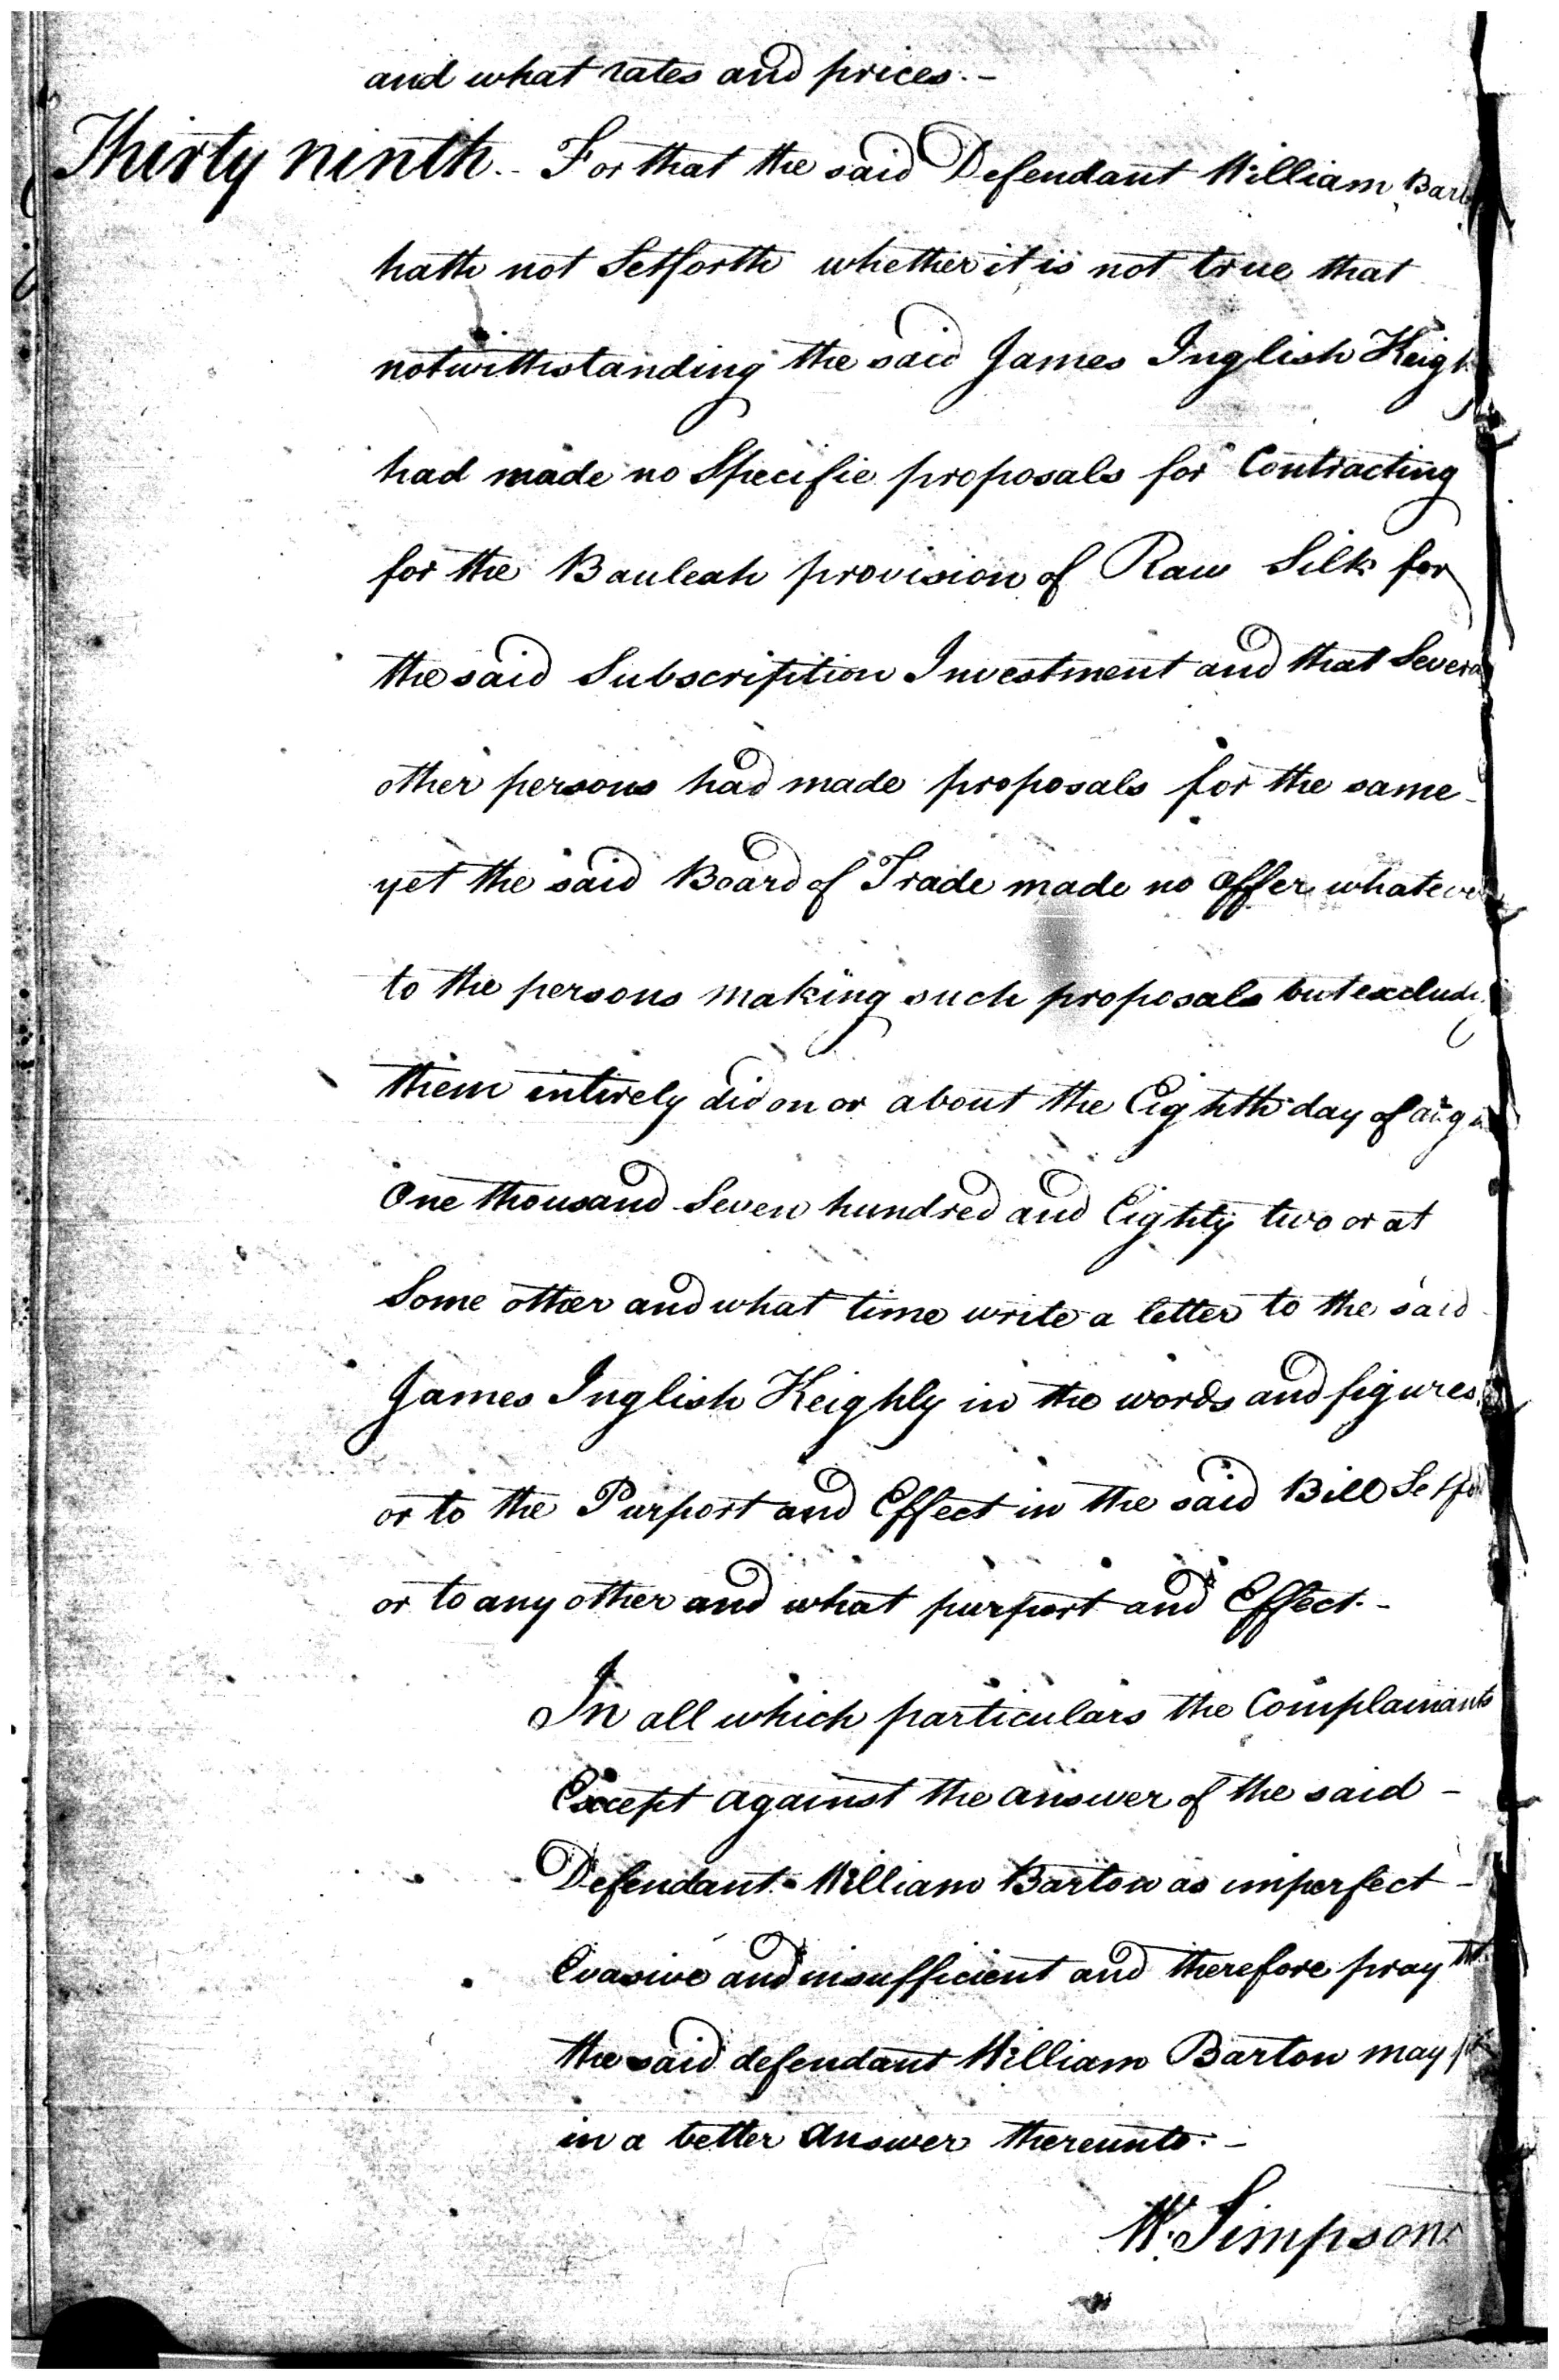 and what rates and prices.-
Thirty ninth.- For that the said Defendant William Bart
hath not Setforth whether it is not true that
notwithstanding the said James Inglish Keigh
had made no Specific proposals for Contracting
for the Bauleah provision of Raw Silk for
the said Subscription Investment and that Several
other persons had made proposals for the same-
yet the said Board of Trade made no offer whatever
to the persons making such proposals but excludg
them entirely did on or about the Eighth day of aug
One thousand Seven hundred and Eighty two or at
Some other and what time write a letter to the said
James Inglish Keighly in the words and figures
or to the Purport and Effect in the said Bill Setfo
or to any other and what purport and Effect.-
In all which particulars the Complainants
Except against the answer of the said -
Defendant William Barton as imperfect -
Evasive and insufficient and therefore pray tht
the said defendant William Barton may
in a better Answer thereunto.-
W. Simpson